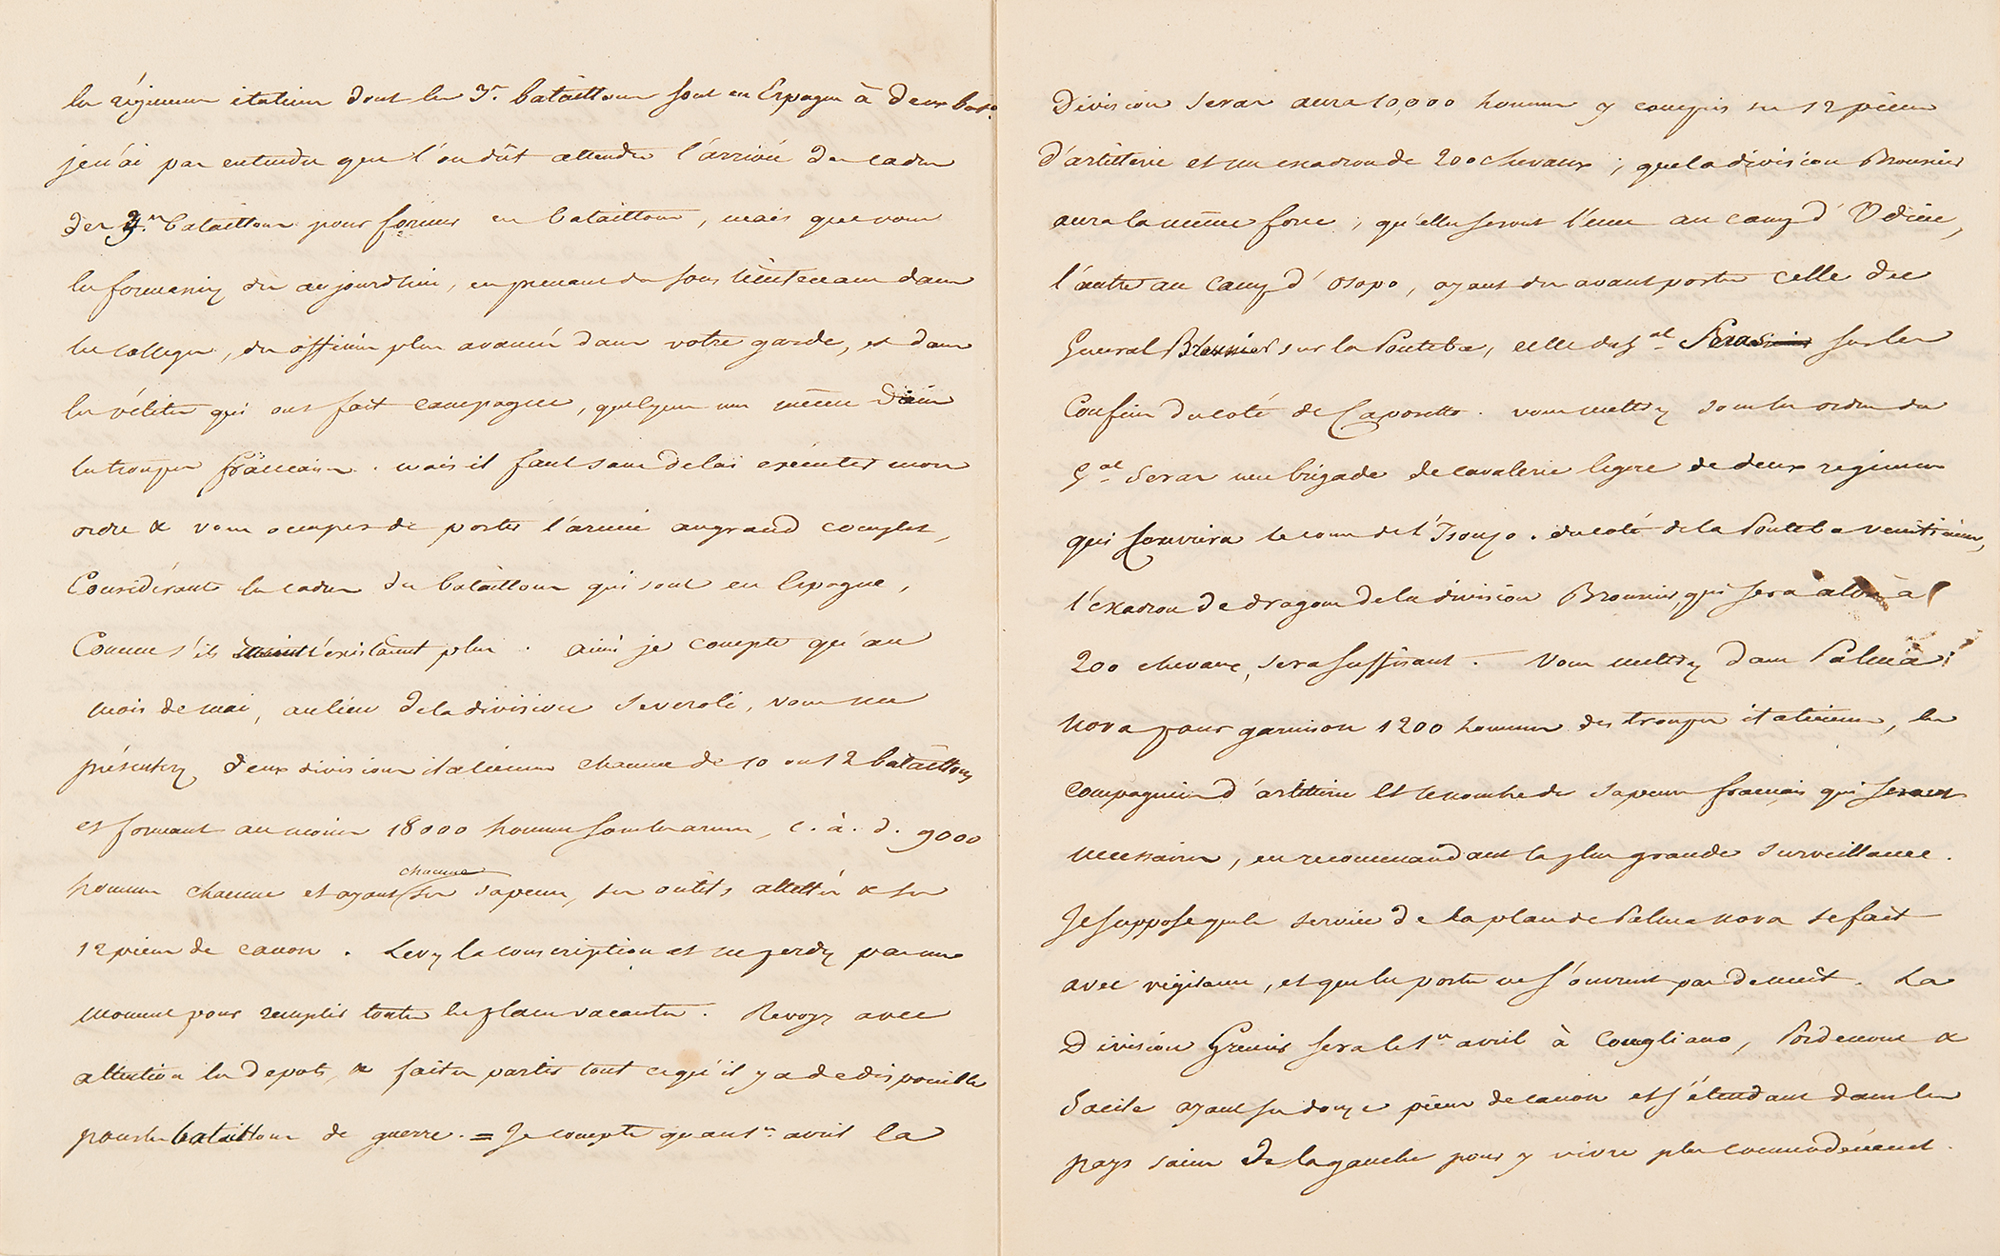 les régimens italiens dont les 3es bataillons sont en Espagne à deux baton
je n'ai pas entendu que l'on dût attendre l'arrivée des cadres
des 3es bataillons pour former ces bataillons, mais que vous
les formassiez dès aujourdhui, en prenant des sous lieutenans dans
les colleges, des officiers plus avancés dans votre garde, et dans
les vélites qui ont fait campagne, quelques uns même dans
les troupes françaises. mais il faut sans delai exécuter mon
ordre & vous occuper de porter l'armée au grand complet,
Considérant les cadres des bataillons qui sont en Espagne,
Comme s'ils n'existaient plus. ainsi je compte qu'au
mois de mai, au lieu de la division Severoli, vous me
présentiez deux divisions italiennes chacune de 10 ou 12 bataillons
et formant au moins 18000 hommes sous les armes, c. à. d. 9000
hommes chacune et ayant chacune ses sapeurs, ses outils attelés & ses
12 pièces de canon. Levez la conscription et ne perdez pas un
moment pour remplir toutes les places vacantes. Revoyez avec
attention les depots, & faites partir tout ce qu'il y a de disponible
pour les bataillons de guerre. = Je compte qu'au 1er avril la
Division Seras aura 10,000 hommes y compris ses 12 pièces
d'artillerie et un escadron de 200 chevaux; que la division Broussier
aura la même force; qu'elles seront l'une au camp d'Udine,
l'autre au camp d'Osopo, ayant des avant postes celle du
General Broussier sur la Ponteba, celle du Gal Seras sur les
Confins du coté de Caporetto. vous mettrez sous les ordres du
Gal Seras une brigade de cavalerie legere de deux regimens
qui couvrira le cours de l'Isonzo. du coté de la Ponteba venitienne,
l'escadron de dragons de la division Broussier, qui sera alors à
200 chevaux, sera suffisant. Vous mettrez dans Palma
nova pour garnison 1200 hommes des troupes italiennes, les
compagnies d'artillerie et le nombre de sapeurs français qui seront
necessaires, en recommandant la plus grande surveillance.
Je suppose que le service de la place de Palma nova se fait
avec vigilance, et que les portes ne s'ouvrent pas de nuit. La
Division Grenier sera le 1er avril à Conegliano, Pordenone &
Sacile ayant ses douze pièces de canon et s'étendant dans les
pays sains de la gauche pour y vivre plus commodément.